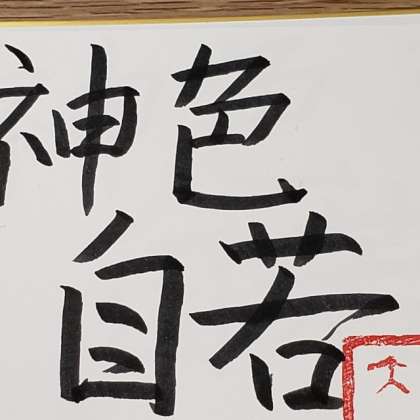 神色
自若